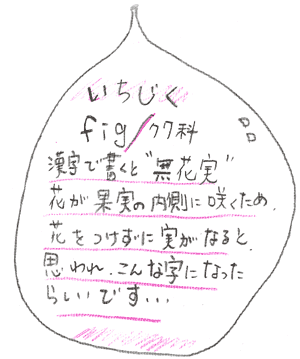 いちじく
fig/クワ科
漢字で書くと"無花実"
花が果実の内側に咲くため、
花をつけずに実がなると、
思われ、こんな字になった
らしいです...